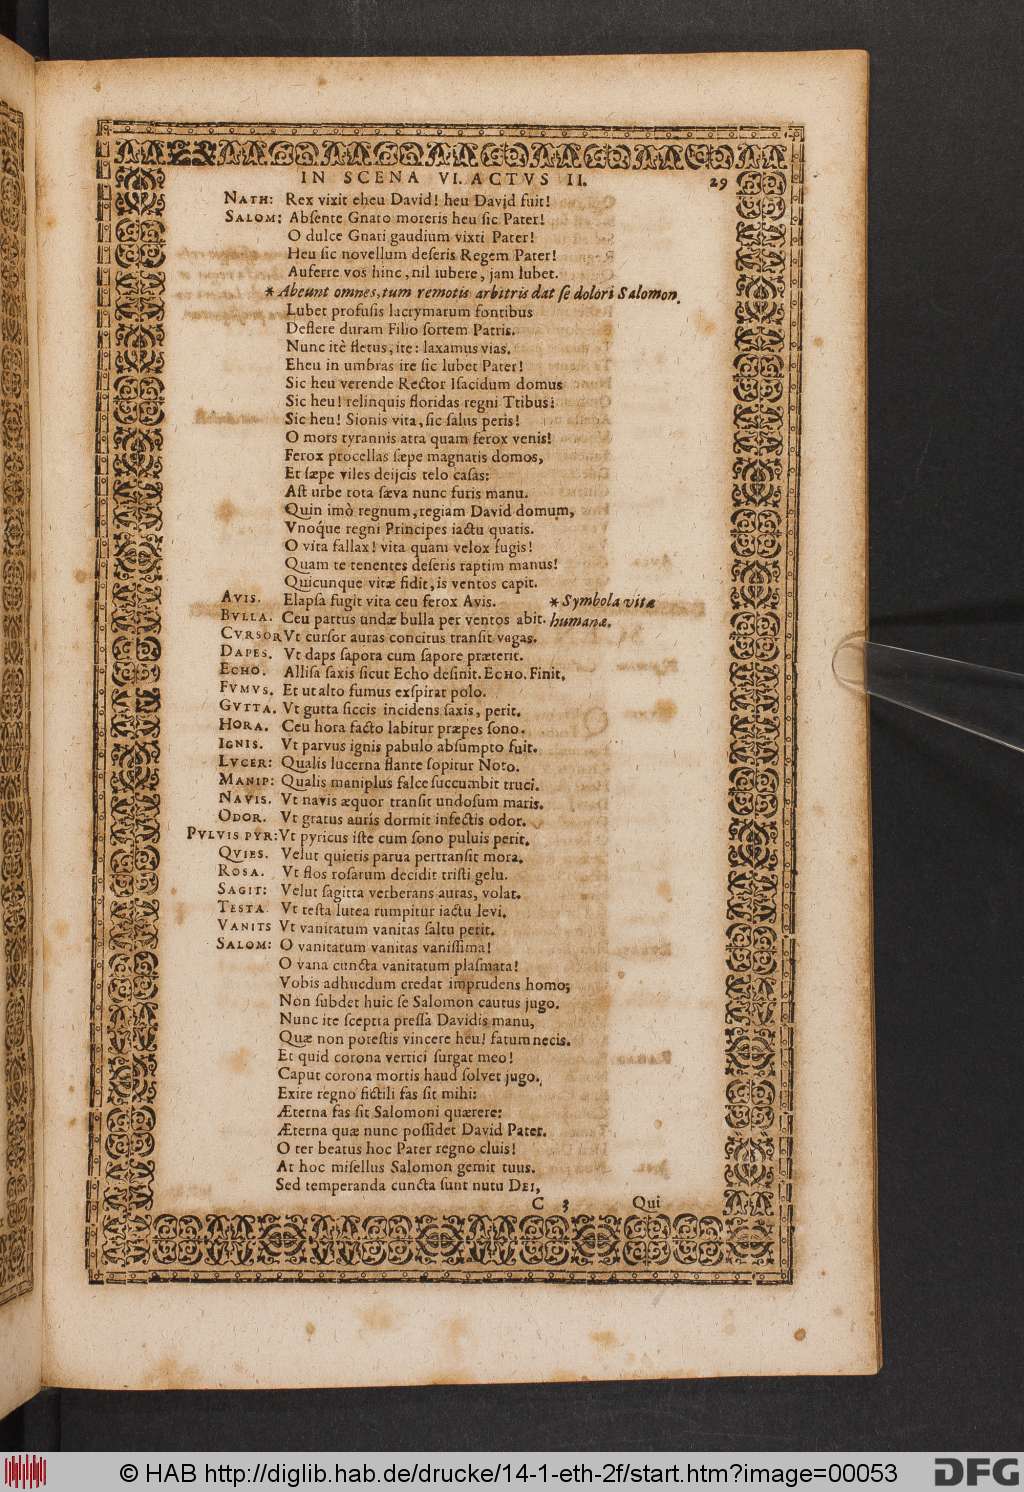 IN SCENA VI. ACTVS II. 29
NATH: Rex vixit eheu David! heu David fuit!
SALOM: Abſente Gnato moreris heu ſic Pater!
O dulce Gnati gaudium vixti Pater!
Heu ſic novellum deſeris Regem Pater!
Auferre vos hinc, nil iubere, jam lubet.
* Abeunt omnes, tum remotis arbitris dat ſe dolori Salomon.
Lubet profuſis lacrymarum fontibus
Deflere duram Filio ſortem Patris.
Nunc itè fletus, ite: laxamus vias.
Eheu in umbras ire ſic lubet Pater!
Sic heu verende Rector Iſacidum domus
Sic heu! relinquis floridas regni Ttibus:
Sic heu! Sionis vita, ſic ſalus peris!
O mors tyrannis atra quam ferox venis!
Ferox procellas ſæpe magnatis domos,
Et ſæpe viles deijcis telo caſas:
Aſt urbe tota ſæva nunc furis manu.
Quin imò regnum, regiam David domum,
Vnoq́ue regni Principes iactu quatis.
O vita fallax! vita quam velox fugis!
Quam te tenentes deſeris raptim manus!
Quicunque vitæ fidit, is ventos capit.
AVIS. Elapſa fugit vita ceu ferox Avis. * Symbola vitæ
BVLLA. Ceu partus undæ bulla per ventos abit. humanæ.
CVRSOR Vt curſor auras concitus tranſit vagas.
DAPES. Vt daps ſapora cum ſapore præterit.
ECHO. Alliſa ſaxis ſicut Echo deſinit. ECHO. Finit.
FVMVS. Et ut alto fumus exſpirat polo.
GVTTA. Vt gutta ſiccis incidens ſaxis, perit.
HORA. Ceu hora facto labitur præpes ſono.
IGNIS. Vt parvus ignis pabulo abſumpto fuit.
LVCER: Qualis lucerna flante ſopitur Noto.
MANIP: Qualis maniplus falce ſuccumbit truci.
NAVIS. Vt navis æquor tranſit undoſum maris.
ODOR. Vt gratus auris dormit infectis odor.
PVLVIS PYR: Vt pyricus iſte cum ſono puluis perit.
QVIES. Velut quietis parua pertranſit mora.
ROSA. Vt flos roſarum decidit triſti gelu.
SAGIT: Velut ſagitta verberans auras, volat.
TESTA. Vt teſta lutea rumpitur iactu levi.
VANITS Vt vanitatum vanitas ſaltu perit.
SALOM: O vanitatum vanitas vaniſſima!
O vana cuncta vanitatum plaſmata!
Vobis adhucdum credat imprudens homo;
Non ſubdet huic ſe Salomon cautus jugo.
Nunc ite ſceptra preſſà Davidis manu,
Quæ non poteſtis vincere heu! fatum necis.
Et quid corona vertici ſurgat meo!
Caput corona mortis haud ſolvet jugo.
Exire regno fictili fas ſit mihi:
Æterna fas ſit Salomoni quærere:
Æterna quæ nunc poſſidet David Pater.
O ter beatus hoc Pater regno cluis!
At hoc miſellus Salomon gemit tuus.
Sed temperanda cuncta ſunt nutu DEI,
C 3 Qui
© HAB http://diglib.hab.de/drucke/14-1-eth-2f/start.htm?image=00053
DFG